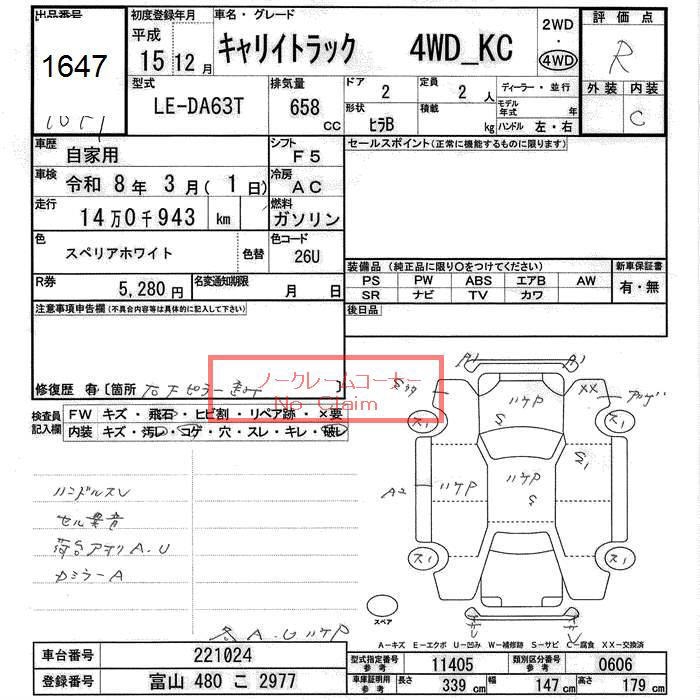 出品番号
1647
1051
初度登録年月
平成
15 12月
車名・グレード
キャリイトラック 4WD_KC
2WD
・
4WD
評価点
R
外装 内装
C
型式
LE-DA63T
排気量
658 cc
ドア
2
定員
2 人
形状
ﾋﾗB
積載
kg
ディーラー・並行
モデル年式 年
ハンドル 左・右
車歴
自家用
シフト
F5
車検
令和 8年 3月( 1日)
冷房
AC
走行
14万0千943 km
燃料
ガソリン
色
スペリアホワイト
色替
色コード
26U
R券
5,280円
名変通知期限
月 日
セールスポイント(正常に機能するものに限ります)
装備品(純正品に限り○をつけてください)
PS PW ABS エアB AW
SR ナビ TV カワ
新車保証書
有・無
後日品
注意事項申告欄(不具合内容等は具体的に記入して下さい)
修復歴 有 〔箇所 右下ピラー 〕
ノークレームコーナー
No Claim
検査員記入欄
FW キズ・飛石・ヒビ割・リペア跡・×要
内装 キズ・汚レ・コゲ・穴・スレ・キレ・破レ
ハンドルスレ
セル異音
荷台アオリA.U
カミラーA
各A.UハケP
A1 A1
XX
アカゲ
ス1 ス1
ハケP
S
S1
A2
ハケP
ハケP
S
ス1 ス1
スペア
A-キズ E-エクボ U-凹み W-補修跡 S-サビ C-腐食 XX-交換済
車台番号
221024
登録番号
富山 480 こ 2977
型式指定番号 参考
11405
類別区分番号 参考
0606
車庫証明用 参考
長さ 339 cm 幅 147 cm 高さ 179 cm